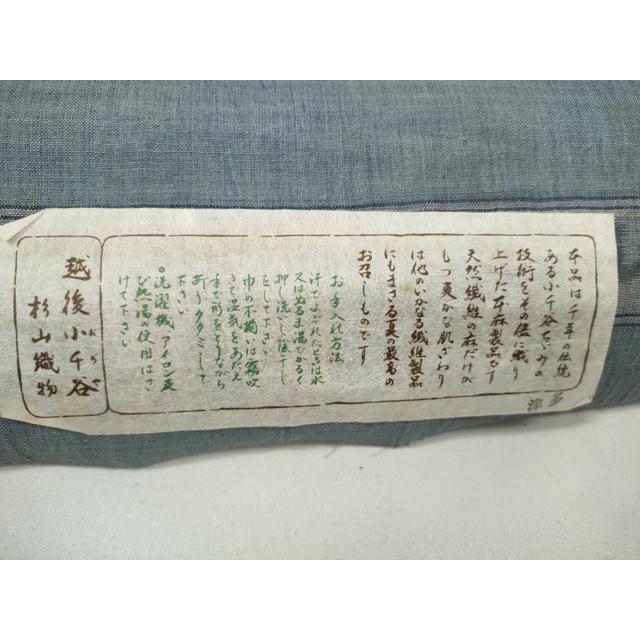 本品は千年の伝統
ある小千谷ちゞみの
技術をその侭に織り
上げた本麻製品です
天然繊維の麻だけが
もつ爽かな肌ざわり
は他のいかなる繊維製品
にもまさる夏の最高の
お召しものです
お手入れ方法
汗でよごれたときは水
又はぬるま湯でかるく
押し洗いし陰干し
をして下さい
巾の不揃いは霧吹
きで湿気をあたえ
手で形をとゝのえながら
折りタタミして
下さい
○洗濯機、アイロン及
び熱湯の使用はさ
けて下さい
越後小千谷
おぢや
杉山織物